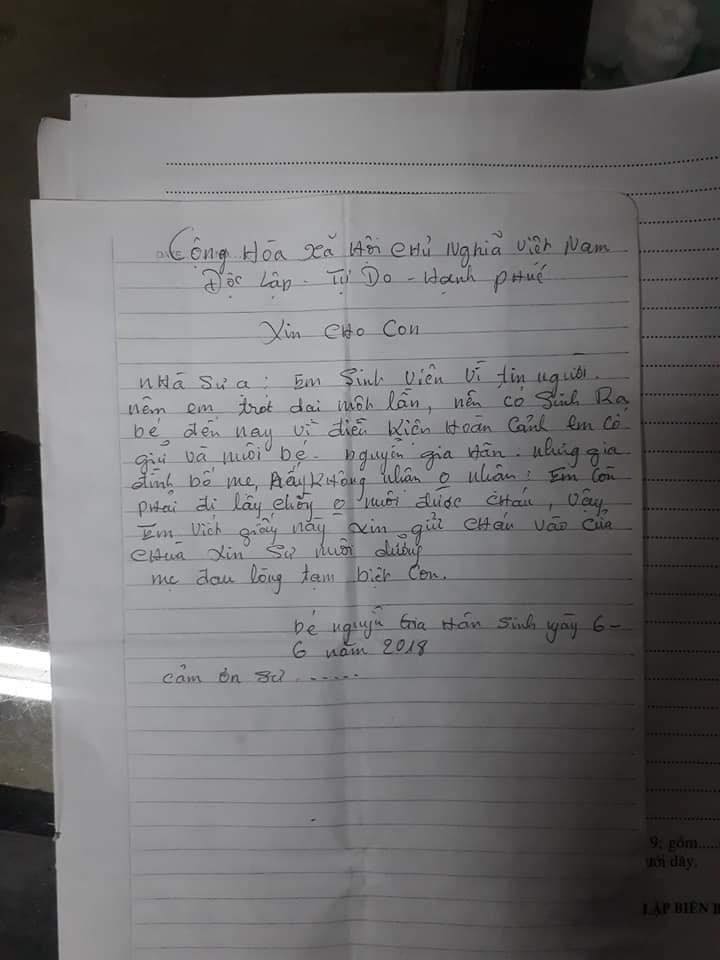 Cộng Hòa Xã Hội Chủ Nghĩa Việt Nam
Độc Lập - Tự Do - Hạnh Phúc
Xin Cho Con
Nhà Sư ạ: Em Sinh Viên Vì tin người.
nêm em trót dai một lần, nên có Sinh Ra
bé đến nay vì điều Kiên Hoàn Cảnh em Cố
giữ và nuôi bé. nguyễn gia Hân. nhưng gia
đình bố mẹ, ĐẤy Không nhân o nhân: Em Còn
phải đi lấy chồng o nuôi được cháu, Vây
Em Viết giấy này Xin gửi cháu Vào Cửa
Chùa Xin Sư nuôi dưỡng
mẹ đau lòng tạm biệt Con.
bé nguyễn Gia Hân Sinh ngày 6-
6 năm 2018
cảm ơn Sư ......
9; gồm....
ưới đây.
LẬP BIÊN B